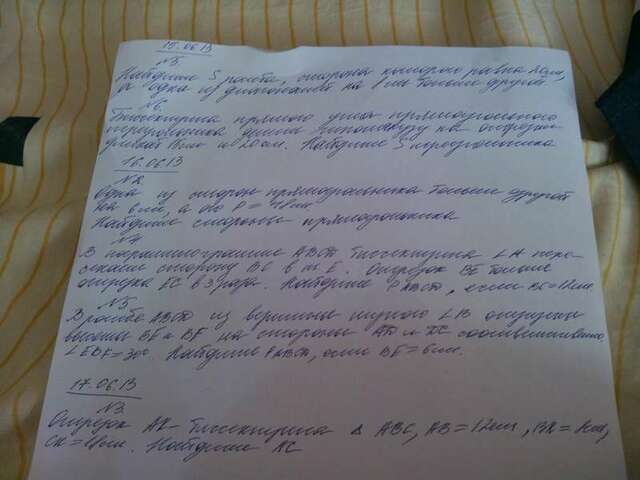 15.06.13
№5.
Найдите S ромба, сторона которого равна см,
а одна из диагоналей на больше другой
№6.
Биссектриса прямого угла прямоугольного
треугольника делит гипотенузу на отрезки
15см и 20см. Найдите S треугольника
16.06.13
№2
Одна из сторон прямоугольника больше другой
на 6см, а P = 48см
Найдите стороны прямоугольника
№4
В параллелограмме ABCD биссектриса ∠A пере-
секает сторону BC в т. E. Отрезок BE больше
отрезка EC в 3 раза. Найдите P ABCD, если BC=12см.
№5
В ромбе ABCD из вершины тупого ∠B опущены
высоты BE и BF на стороны AD и DC соответственно
∠EBF=30° Найдите P ABCD, если BE=6см.
17.06.13
№3.
Отрезок AK- биссектриса ∆ ABC, AB=12см, BK=8см,
CK=18см. Найдите AC